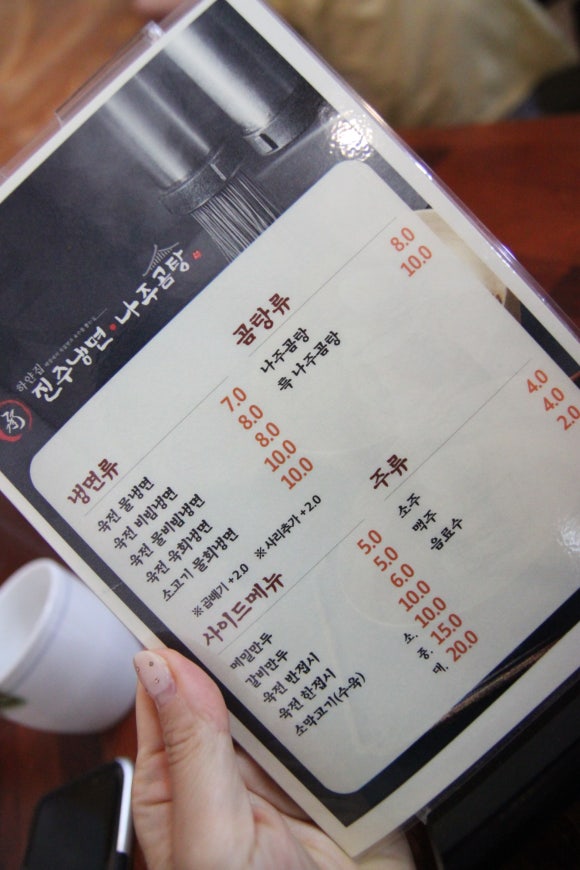 하얀집
진주냉면·나주곰탕
냉면류
육전 물냉면 7.0
육전 비빔냉면 8.0
육전 물비빔냉면 8.0
육전 육회냉면 10.0
소고기 물회냉면 10.0
※곱배기+2.0 ※사리추가+2.0
사이드메뉴
메밀만두 5.0
갈비만두 5.0
육전 반접시 6.0
육전 한접시 10.0
소막고기(수육) 소. 10.0
중. 15.0
대. 20.0
곰탕류
나주곰탕 8.0
흑 나주곰탕 10.0
주류
소주 4.0
맥주 4.0
음료수 2.0